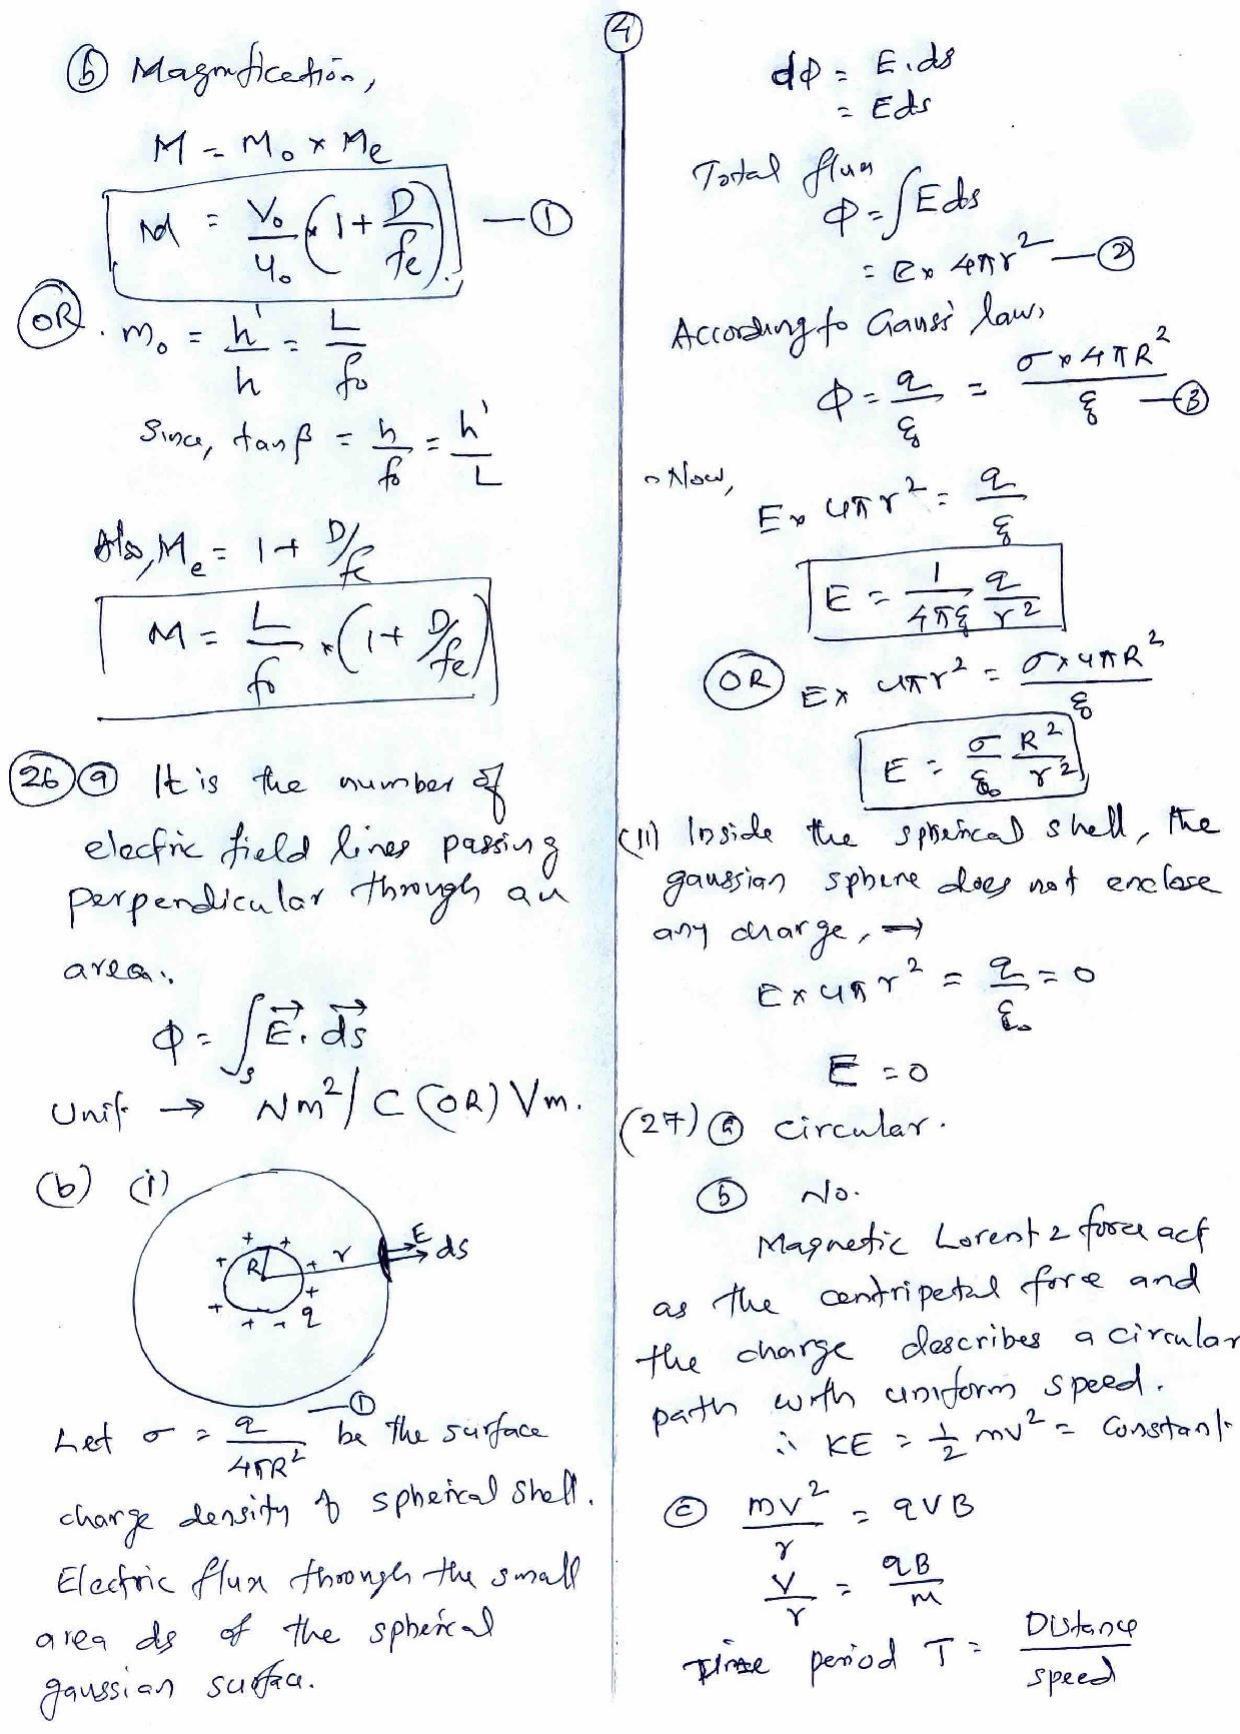 4
(b) Magnification,
M = Mo x Me
M = Vo/uo (1 + D/fe) — (1)
(OR) . mo = h'/h = L/fo
Since, tan β = h/fo = h'/L
Also, Me = 1 + D/fe
M = L/fo x (1 + D/fe)
(26) (a) It is the number of
electric field lines passing
perpendicular through an
area.
Φ = ∫s E⃗. ds⃗
Unit → Nm²/C (OR) Vm.
(b) (i)
+ + + + + + + + +
R r E ds q
Let σ = q/4πR² —(1) be the surface
charge density of spherical shell.
Electric flux through the small
area ds of the spherical
gaussian surface.
dΦ = E.ds
= Eds
Total flux
Φ = ∫Eds
= E x 4πr² — (2)
According to Gauss' law,
Φ = q/ε = σ x 4πR²/ε — (3)
Now,
E x 4πr² = q/ε
E = 1/4πε q/r²
(OR) E x 4πr² = σ x 4πR²/ε
E = σ/ε₀ R²/r²
(ii) Inside the spherical shell, the
gaussian sphere does not enclose
any charge, →
E x 4πr² = q/ε₀ = 0
E = 0
(27) (a) circular.
(b) No.
Magnetic Lorentz force act
as the centripetal force and
the charge describes a circular
path with uniform speed.
∴ KE = 1/2 mv² = Constant
(c) mv²/r = qVB
V/r = qB/m
Time period T = Distance/speed